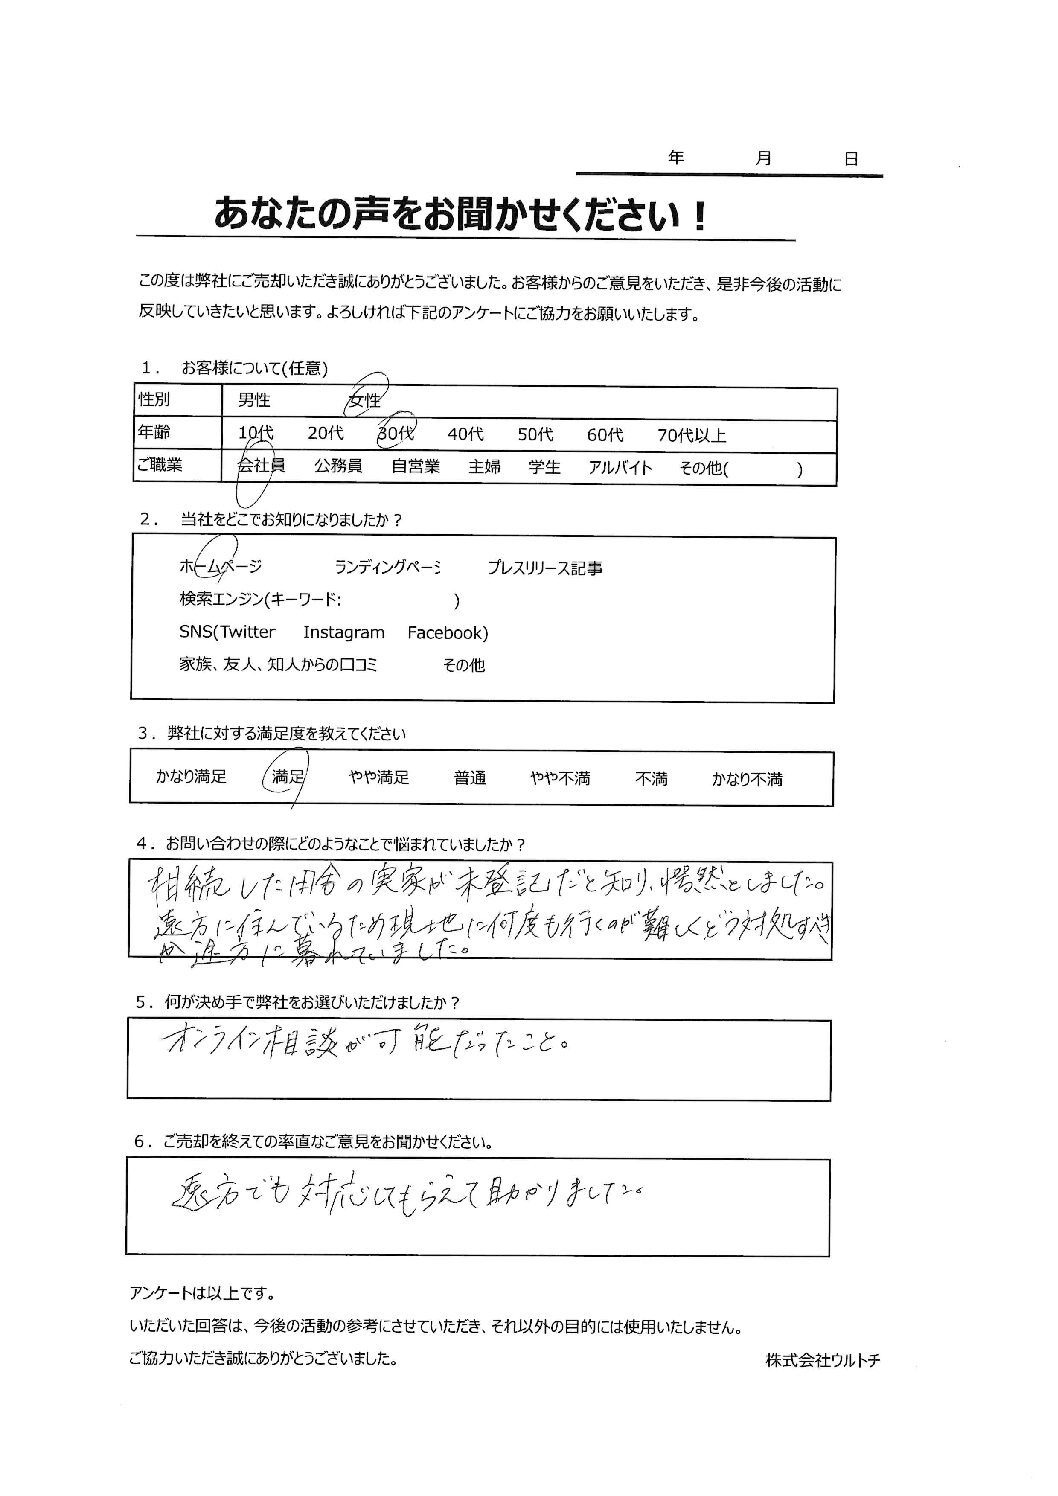 年 月 日
あなたの声をお聞かせください！
この度は弊社にご売却いただき誠にありがとうございました。お客様からのご意見をいただき、是非今後の活動に
反映していきたいと思います。よろしければ下記のアンケートにご協力をお願いいたします。
１． お客様について(任意)
性別 男性 女性
年齢 10代 20代 30代 40代 50代 60代 70代以上
ご職業 会社員 公務員 自営業 主婦 学生 アルバイト その他( )
２． 当社をどこでお知りになりましたか？
ホームページ ランディングページ プレスリリース記事
検索エンジン(キーワード: )
SNS(Twitter Instagram Facebook)
家族、友人、知人からの口コミ その他
３．弊社に対する満足度を教えてください
かなり満足 満足 やや満足 普通 やや不満 不満 かなり不満
４．お問い合わせの際にどのようなことで悩まれていましたか？
相続した田舎の実家が未登記だと知り、愕然としました。
遠方に住んでいるため現地に何度も行くのが難しくどう対処すべき
か途方に暮れていました。
５．何が決め手で弊社をお選びいただけましたか？
オンライン相談が可能だったこと。
６．ご売却を終えての率直なご意見をお聞かせください。
遠方でも対応してもらえて助かりました。
アンケートは以上です。
いただいた回答は、今後の活動の参考にさせていただき、それ以外の目的には使用いたしません。
ご協力いただき誠にありがとうございました。 株式会社ウルトチ